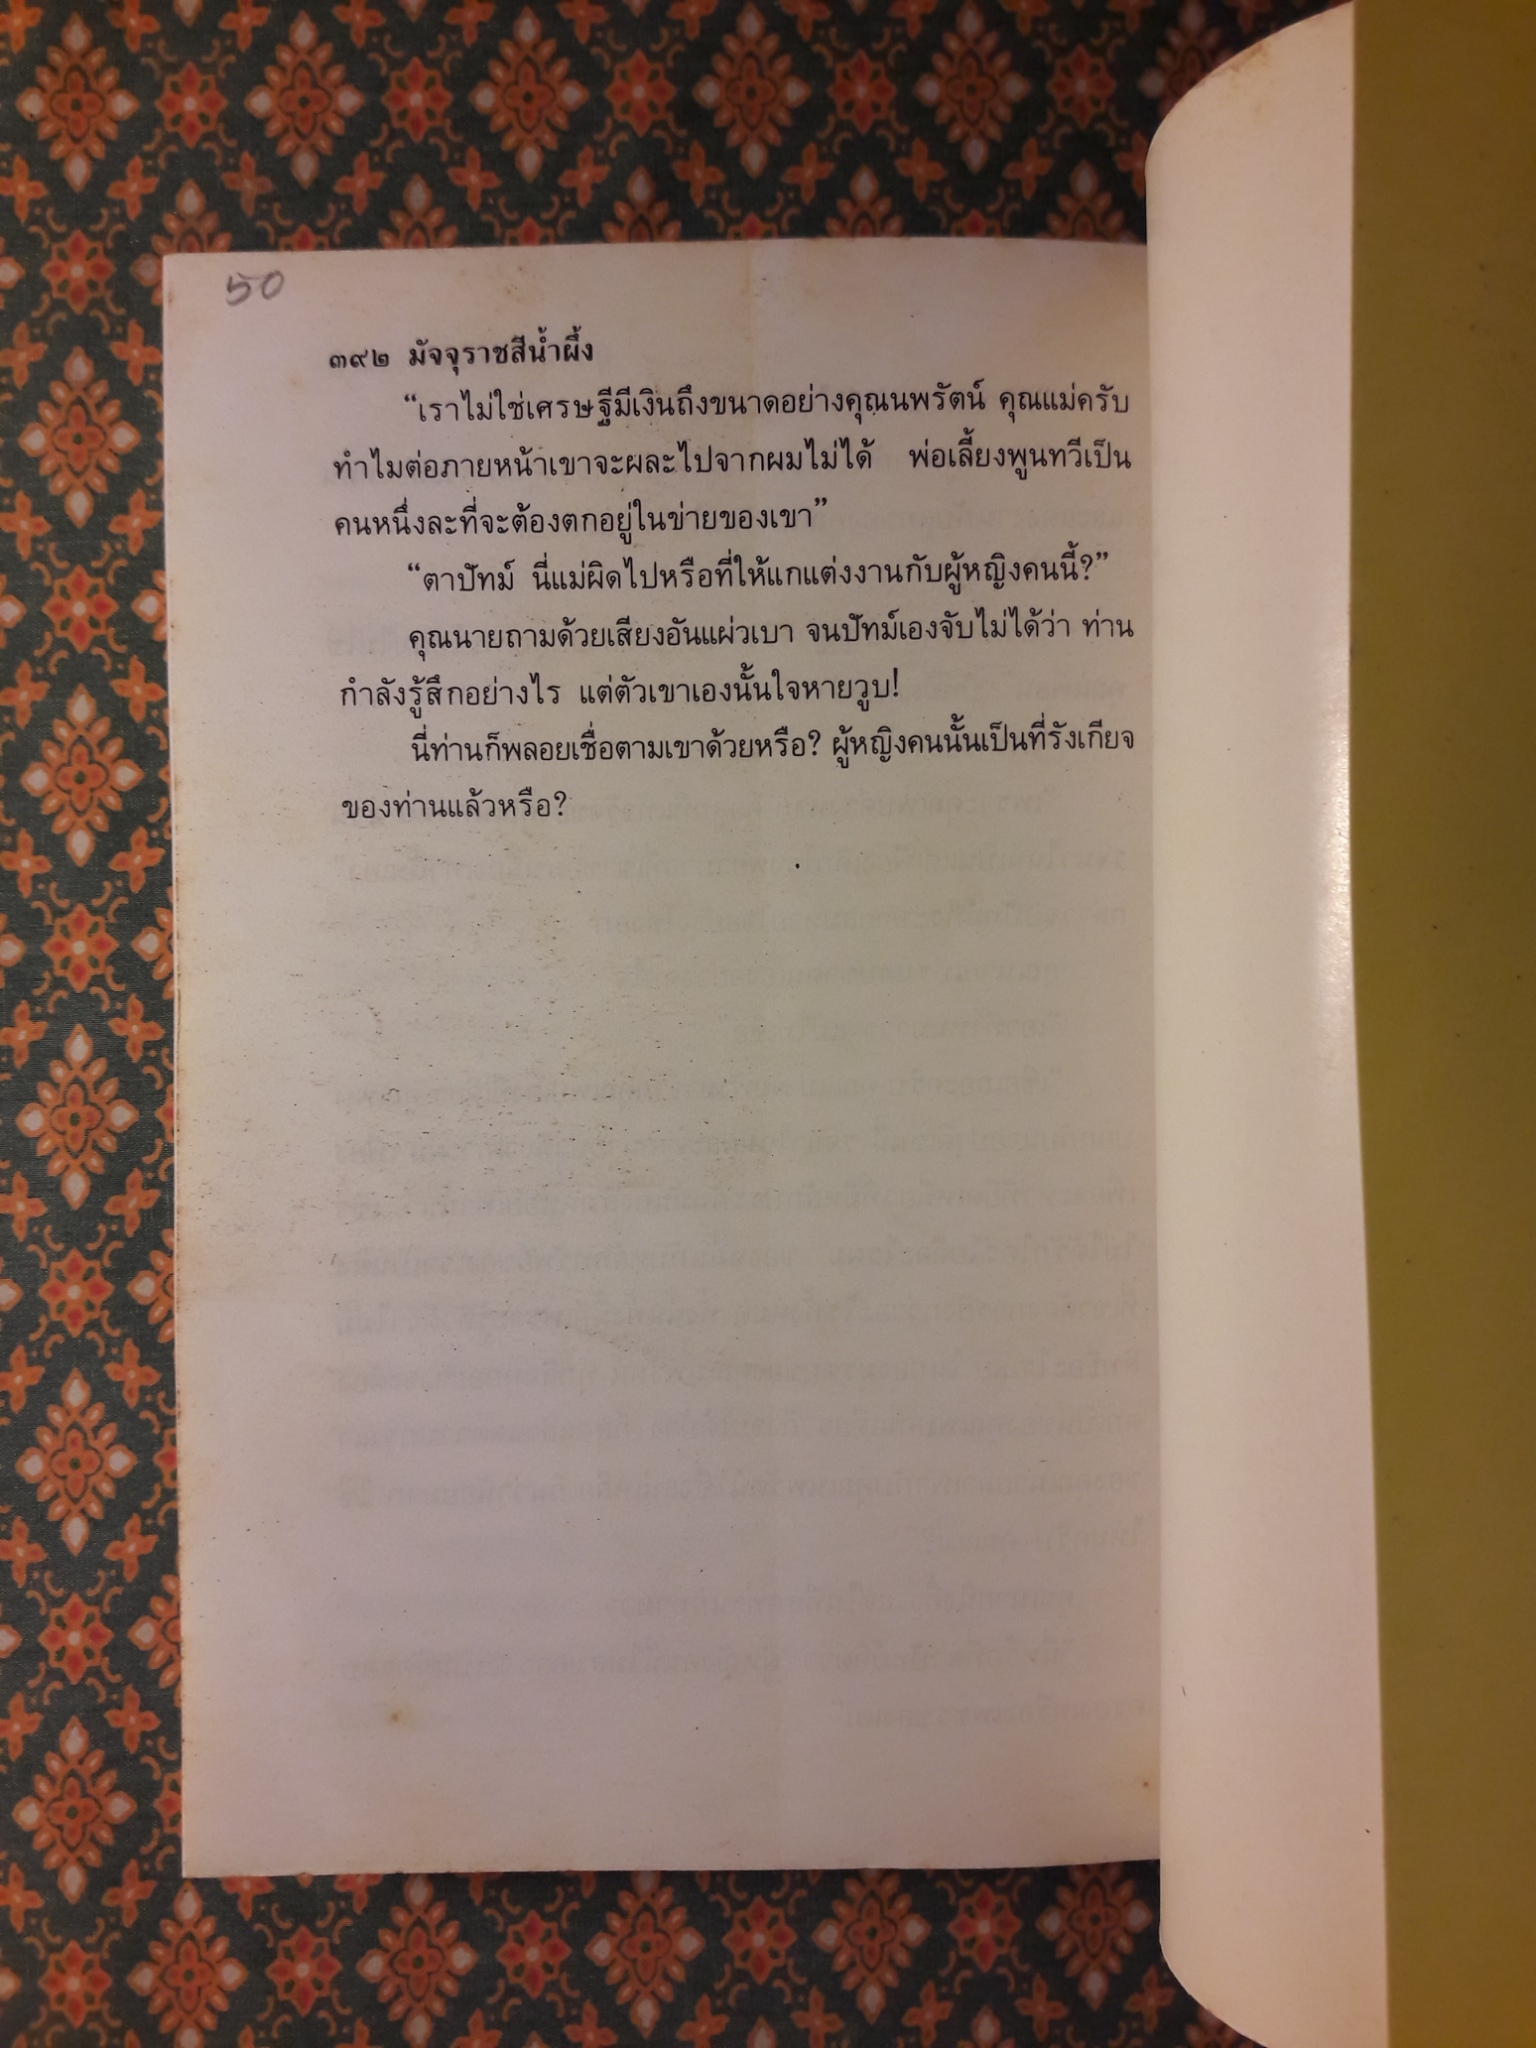 50
๓๙๒ มัจจุราชสีน้ำผึ้ง
“เราไม่ใช่เศรษฐีมีเงินถึงขนาดอย่างคุณนพรัตน์ คุณแม่ครับ
ทำไมต่อภายหน้าเขาจะผละไปจากผมไม่ได้ พ่อเลี้ยงพูนทวีเป็น
คนหนึ่งละที่จะต้องตกอยู่ในข่ายของเขา”
“ตาปัทม์ นี่แม่ผิดไปหรือที่ให้แกแต่งงานกับผู้หญิงคนนี้?”
คุณนายถามด้วยเสียงอันแผ่วเบา จนปัทม์เองจับไม่ได้ว่า ท่าน
กำลังรู้สึกอย่างไร แต่ตัวเขาเองนั้นใจหายวูบ!
นี่ท่านก็พลอยเชื่อตามเขาด้วยหรือ? ผู้หญิงคนนั้นเป็นที่รังเกียจ
ของท่านแล้วหรือ?